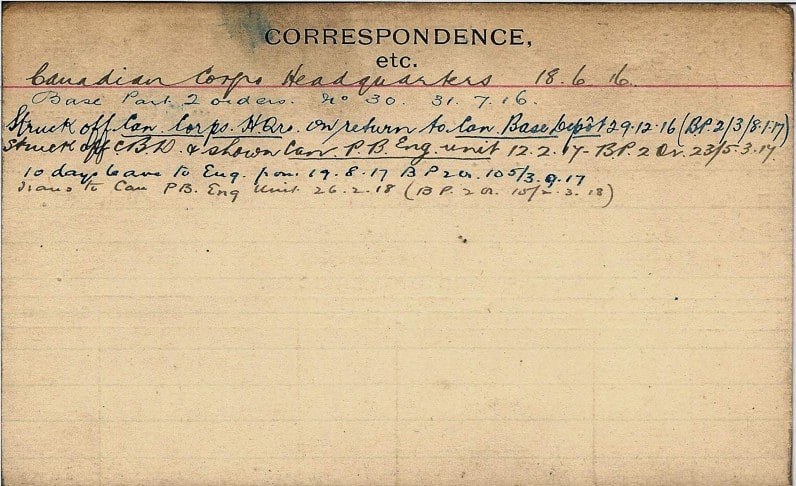 CORRESPONDENCE,
etc.
Canadian Corps Headquarters 18.6.16.
Base Part 2 orders. No 30. 31.7.16.
Struck off Can. Corps. HQrs. on return to Can. Base Depôt 29.12.16 (B.P.2/3/8.1.17)
Struck off C.B.D. & shown Can. P.B. Eng. unit 12.2.17 - B.P.2 Or. 23/5.3.17.
10 days leave to Eng. from 19.8.17 B P 2 or. 105/3.9.17
Trans to Can P.B. Eng Unit 26.2.18 (B P. 2 or. 15/2.3.18)